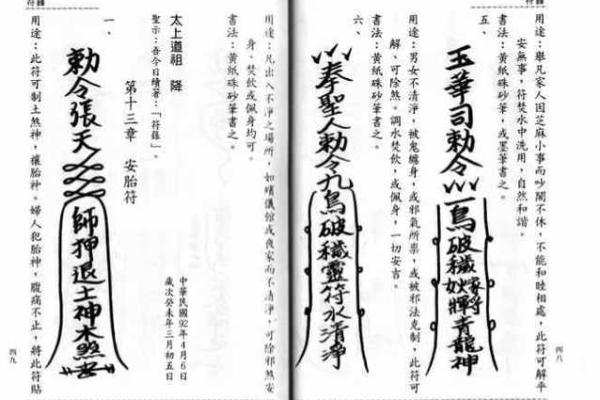 符錄
五、
用途：舉凡家人因芝麻小事而吵鬧不休，不能和睦相處，此符可解平
安無事，符焚水中洗用，自然和諧。
書法：黃紙硃砂筆，或墨筆書之。
玉華司勅令
一鳥破穢
青龍神
六、
用途：男女不清淨，被鬼纏身，或邪氣所祟，或被邪法克制，此符可
解、可除煞。調水焚飲，或佩身，一切安吉。
書法：黃紙硃砂筆書之。
奉聖人勅令九鳥破穢靈符水清淨
四八
符錄
用途：凡出入不淨之場所，如殯儀館或喪家而不清淨，可除邪煞安
身。焚飲或佩身均可。
書法：黃紙硃砂筆書之。
中華民國92年4月6日
歲次癸未年三月初五日
太上道祖 降
聖示：吾今日續著：「符錄」。
第十三章 安胎符
一、
勅令張天師押退土神木煞安
用途：此符可制土煞神，穰胎神。婦人犯胎神，腹痛不止，將此符貼
四九